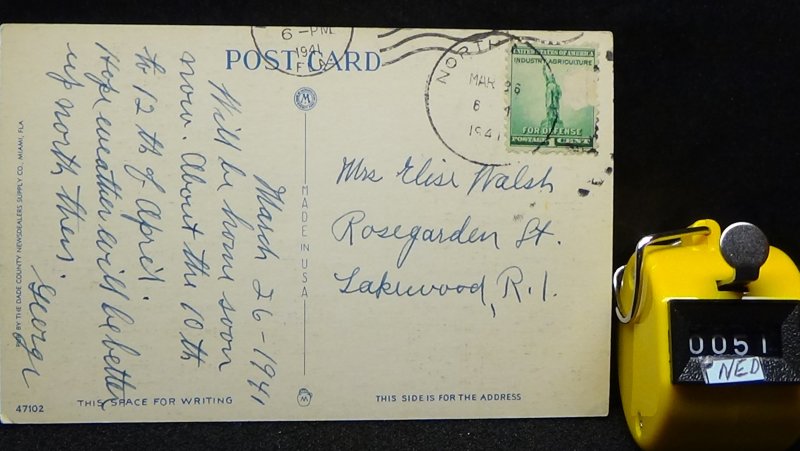 POST CARD
6-PM
1941
NORTH
MAR 26
6
1941
UNITED STATES OF AMERICA
INDUSTRY AGRICULTURE
FOR DEFENSE
POSTAGE 1 CENT
March 26-1941
Will be home soon
now. About the 10th
to 12th of April.
Hope weather will be better
up north then.
George
MADE IN USA
Mrs Elise Walsh
Rosegarden St.
Lakewood, R.I.
BY THE DADE COUNTY NEWSDEALERS SUPPLY CO., MIAMI, FLA
47102
THIS SPACE FOR WRITING
THIS SIDE IS FOR THE ADDRESS
0051
NED